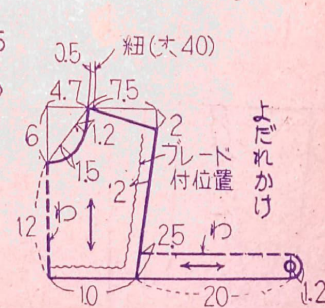 0.5
紐(丈40)
4.7
7.5
6
1.2
2
1.5
ブレード
付位置
2
12
わ
よだれかけ
2.5
わ
10
20
1.2